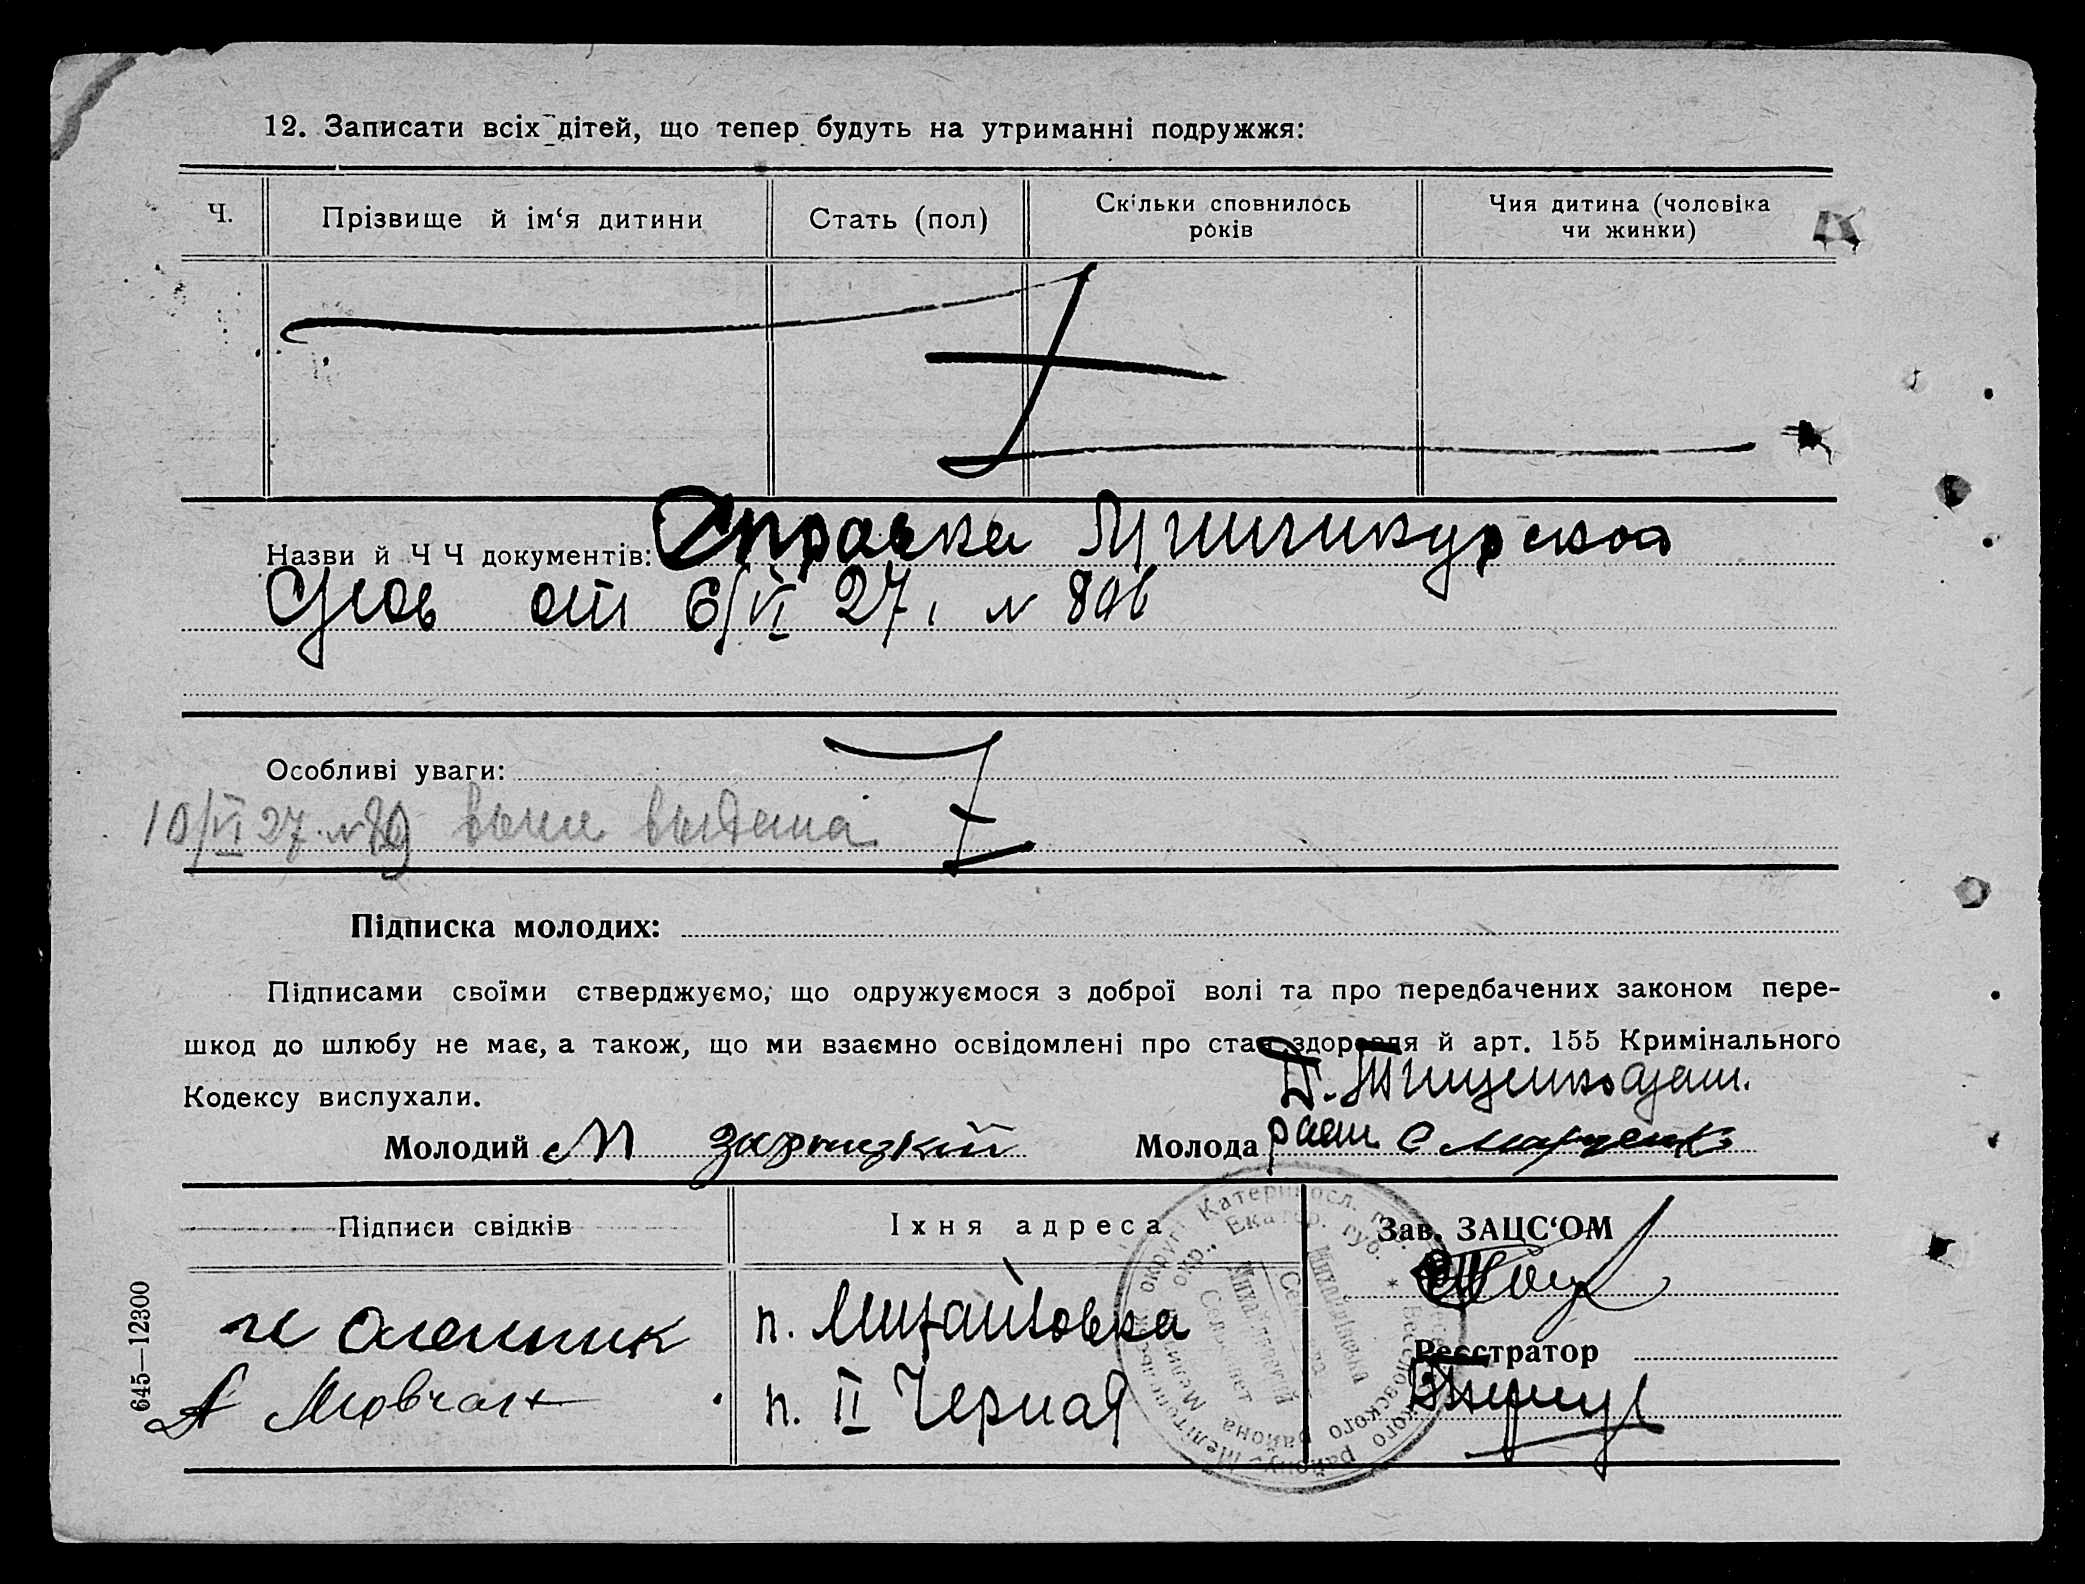 12. Записати всіх дітей, що тепер будуть на утриманні подружжя:
Ч.
Прізвище й ім‘я дитини
Стать (пол)
Скільки сповнилось
років
Чия дитина (чоловіка
чи жинки)
Назви й Ч Ч документів: Справка
от 6/VI 27.
Особливі уваги:
10/VI 27. выдана
Підписка молодих:
Підписами своїми стверджуємо, що одружуємося з доброї волі та про передбачених законом пере-
шкод до шлюбу не має, а також, що ми взаємно освідомлені про стан здоровля й арт. 155 Кримінального
Кодексу вислухали.
Молодий М Зарицкий
Молода
Підписи свідків
Іхня адреса
Зав. ЗАЦС‘ОМ
п. Михайловка
Реєстратор
А Мовчан
п. II Черная
645—12300